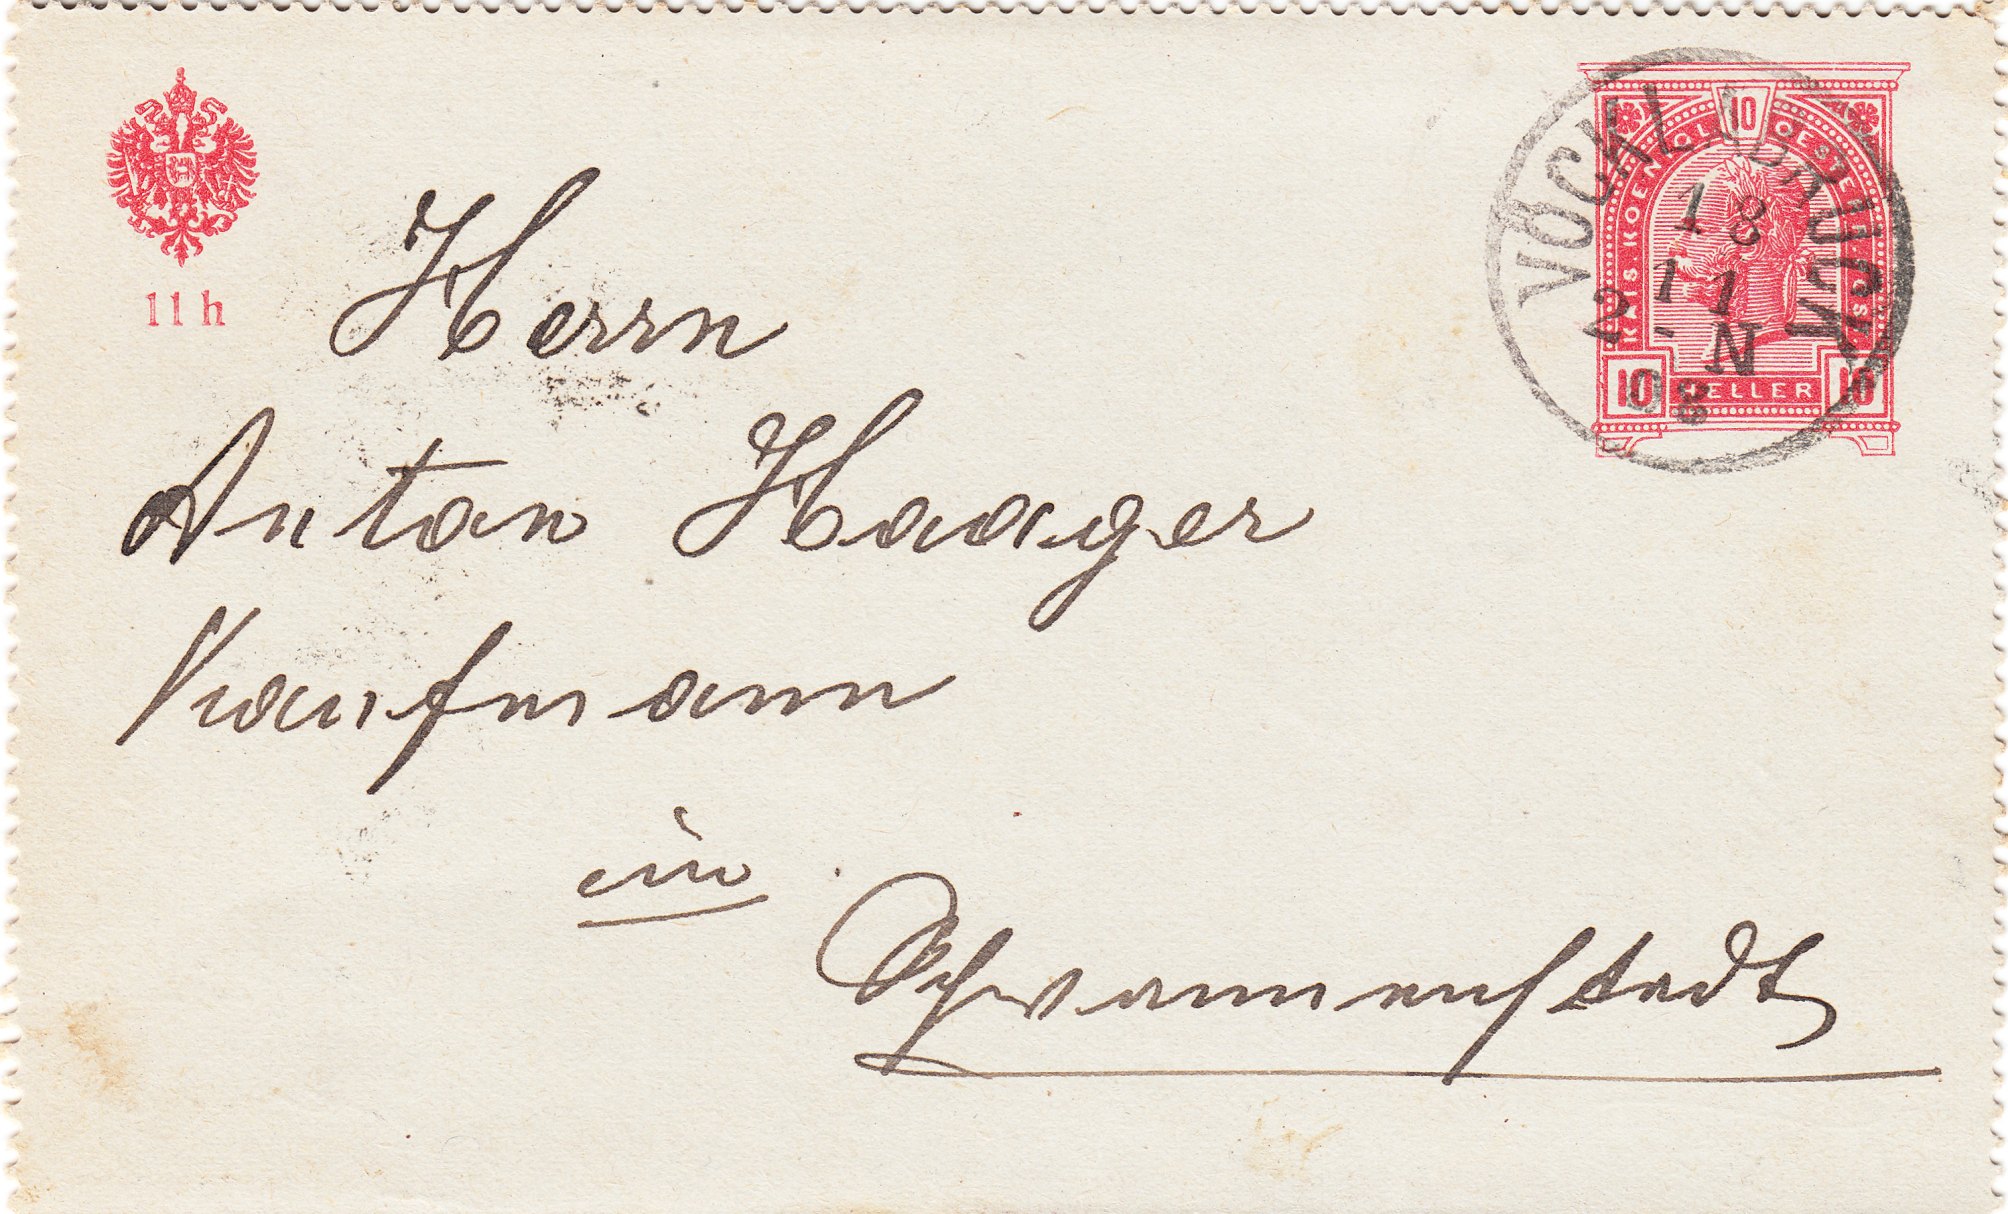 11 h
10
KAIS. KOENIGL. OESTERR. POST
10 HELLER 10
VÖCKLABRUCK
18
11
2 - N
08
Herrn
Anton Haager
Kaufmann
in
Schwannenstadt